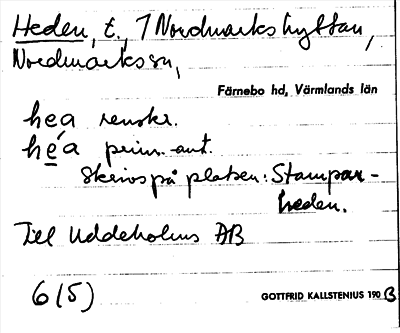 Heden, t., 1 Nordmarkshyttan,
Nordmarks sn,
Färnebo hd, Värmlands län
hea renskr.
he̲´a prim.-ant.
Skrivs på platsen: Stampar-
heden.
Till Uddeholms AB
6(5)
GOTTFRID KALLSTENIUS 190B